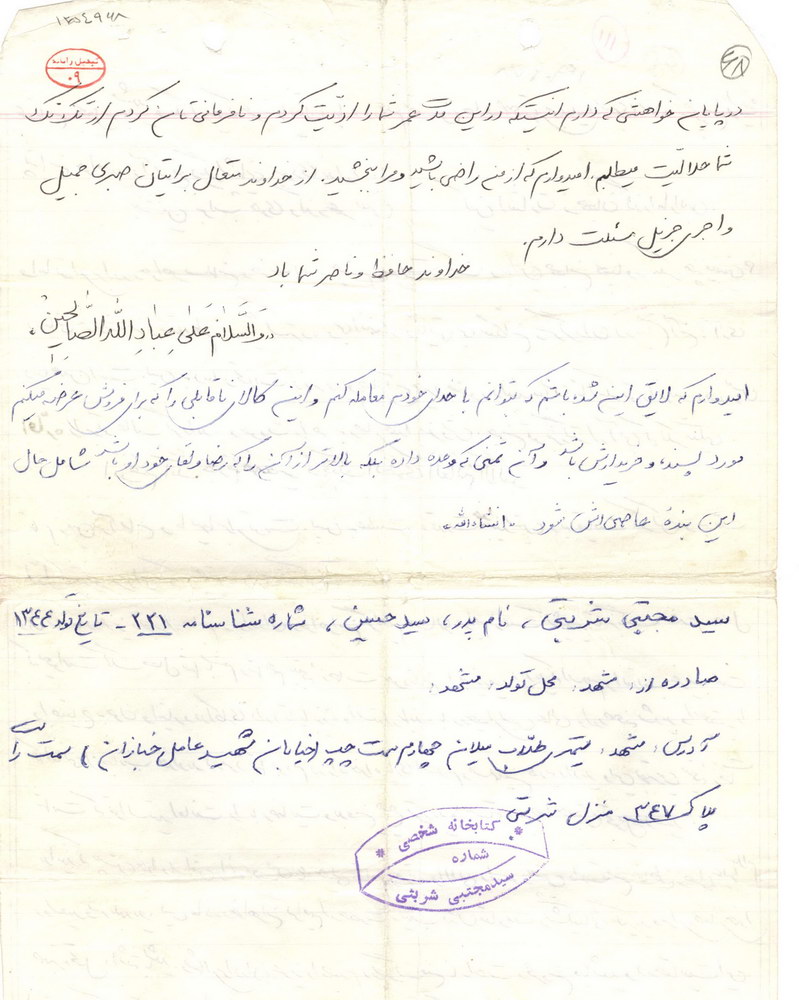 ۱۳۰۵۴۹۶۸
۰۹
در پایان خواهشی که دارم اینست که در این مدت عمر شما را اذیت کردم و نافرمانی تان کردم از تک تک
شما حلالیت میطلبم. امیدوارم که از من راضی باشید و مرا ببخشید. از خداوند متعال برایتان صبری جمیل
و اجری جزیل مسئلت دارم.
خداوند حافظ و ناصر شما باد
«وَالسَّلامُ عَلی عِبادِ اللّهِ الصّالِحینَ»
امیدوارم که لایق این شده باشم که بتوانم با خدای خودم معامله کنم و این کالای ناقابلی را که برای فروش عرضه میکنم
مورد پسند، و خریدارش باشد و آن ثمنی که وعده داده بلکه بالاتر از آن را که رضا و لقای خود او باشد شامل حال
این بنده عاصی اش شود «انشاءالله»
سید مجتبی شربتی، نام پدر، سید حسین، شماره شناسنامه ۲۲۱ - تاریخ تولد ۱۳۴۴
صادره از: مشهد: محل تولد: مشهد:
آدرس: مشهد: طلاب میلان چهارم سمت چپ (خیابان شهید عامل خبازان) سمت راست
پلاک ۳۴۷ منزل شربتی
* کتابخانه شخصی *
شماره
سیدمجتبی شربتی